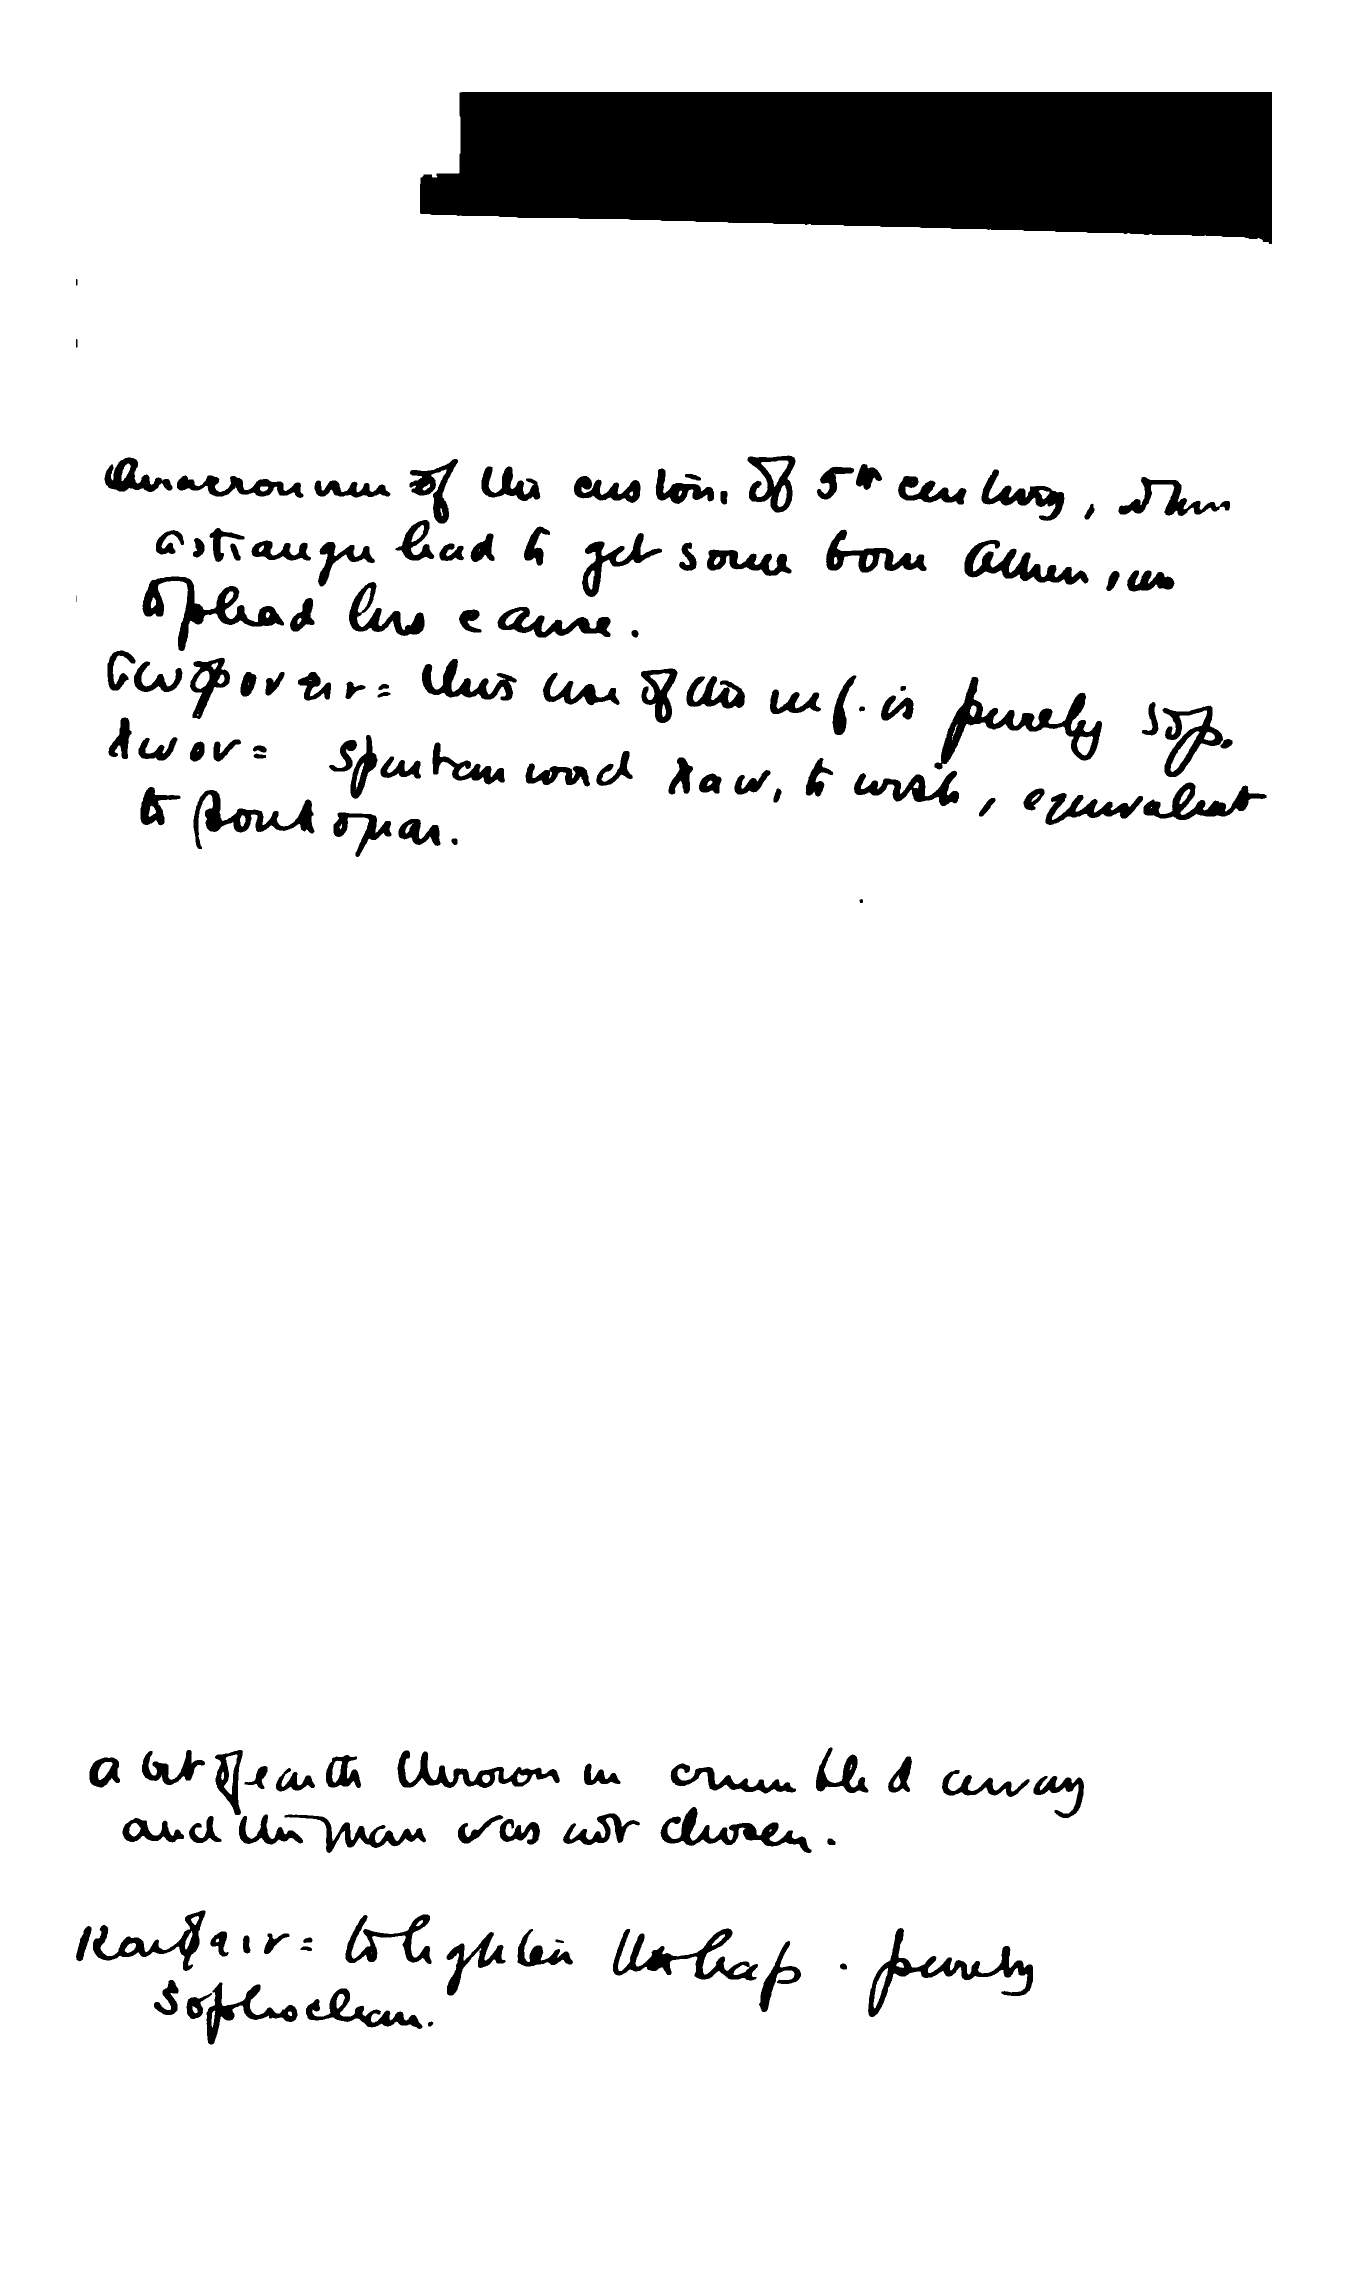 of the custom of 5th century, when
a stranger had to get some born Athenian
to plead his cause.
this use of the inf. is purely Sop.
λωον = Spartan word λαω, to wish, equivalent
to βουλομαι.
a bit of earth thrown in crumbled away
and the man was not chosen.
κουφαιν = to lighten the leap. purely
Sophoclean.